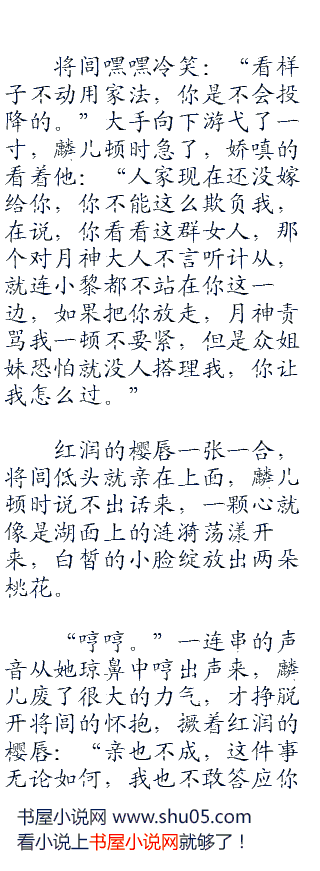 将闾嘿嘿冷笑：“看样
子不动用家法，你是不会投
降的。”大手向下游弋了一
寸，麟儿顿时急了，娇嗔的
看着他：“人家现在还没嫁
给你，你不能这么欺负我，
在说，你看看这群女人，那
个对月神大人不言听计从，
就连小黎都不站在你这一
边，如果把你放走，月神责
骂我一顿不要紧，但是众姐
妹恐怕就没人搭理我，你让
我怎么过。”
红润的樱唇一张一合，
将闾低头就亲在上面，麟儿
顿时说不出话来，一颗心就
像是湖面上的涟漪荡漾开
来，白皙的小脸绽放出两朵
桃花。
“哼哼。”一连串的声
音从她琼鼻中哼出声来，麟
儿废了很大的力气，才挣脱
开将闾的怀抱，撅着红润的
樱唇：“亲也不成，这件事
无论如何，我也不敢答应你
书屋小说网 www.shu05.com
看小说上书屋小说网就够了！